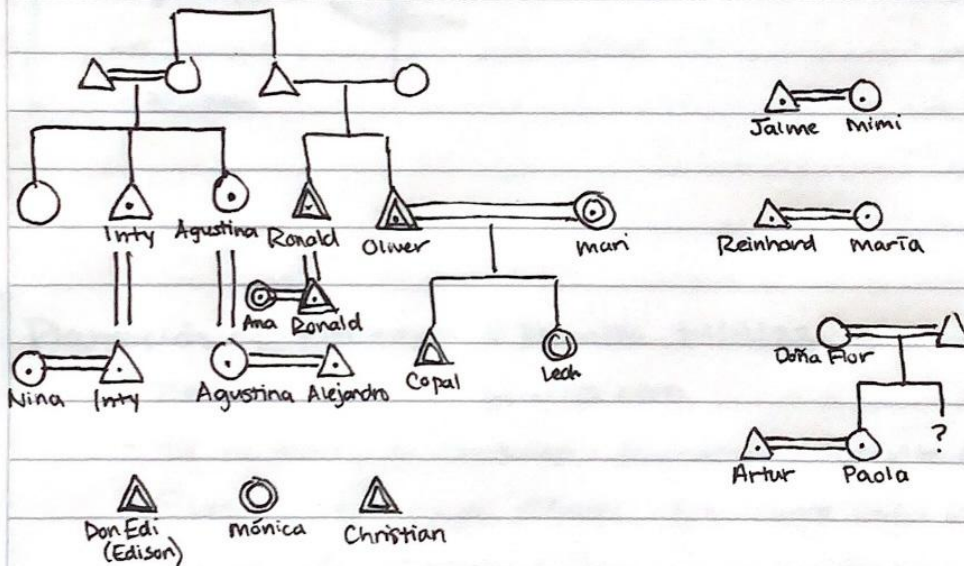 Jaime Mimi
Inty Agustina Ronald Oliver Mari Reinhard María
Ana Ronald
Doña Flor
Nina Inty Agustina Alejandro Copal
Artur Paola ?
Don Edi Mónica Christian
(Edison)